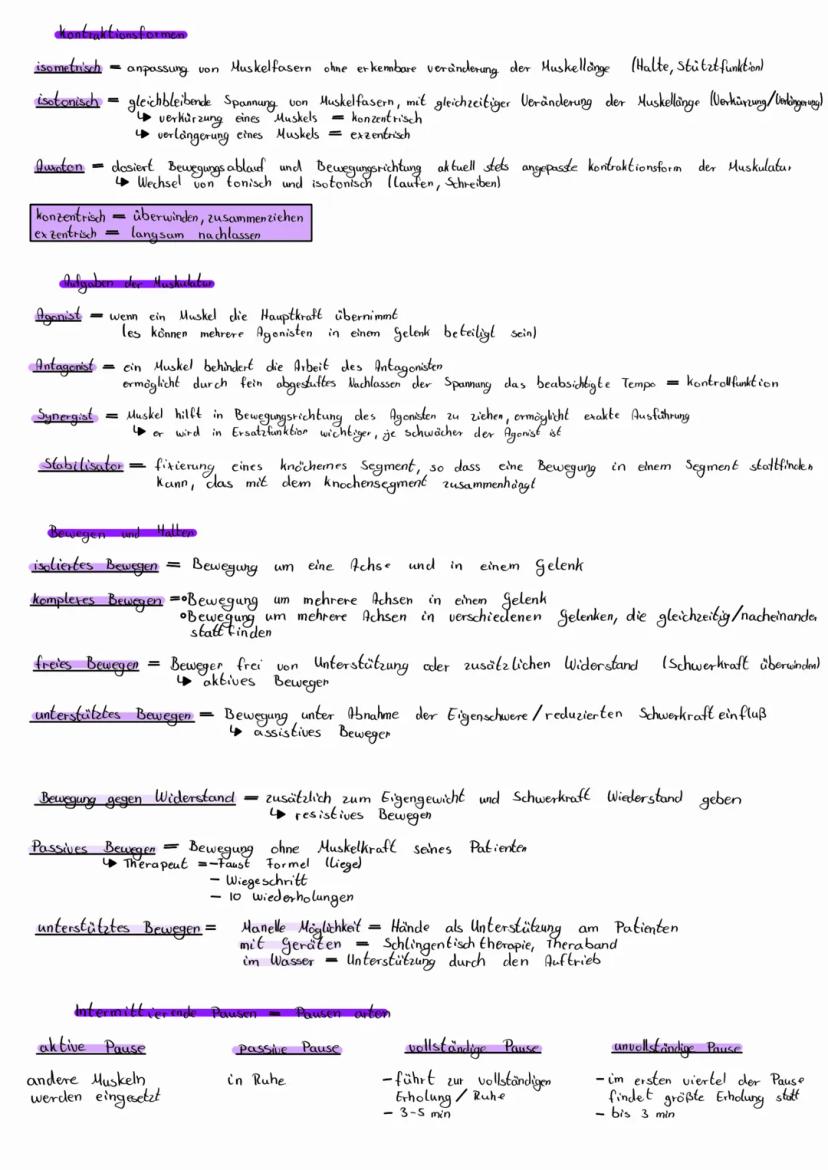 Kontraktionsformen
isometrisch = anpassung von Muskelfasern ohne erkennbare veränderung der Muskellänge (Halte, Stützfunktion)
isotonisch = gleichbleibende Spannung von Muskelfasern, mit gleichzeitiger Veränderung der Muskellänge (Verkürzung/Verlängerung)
↳ verkürzung eines Muskels = konzentrisch
↳ verlängerung eines Muskels = exzentrisch
Auxoton = dosiert Bewegungsablauf und Bewegungsrichtung aktuell stets angepasste kontraktionsform der Muskulatur
↳ Wechsel von tonisch und isotonisch (laufen, Schreiben)
konzentrisch = überwinden, zusammenziehen
exzentrisch = langsam nachlassen
Aufgaben der Muskulatur
Agonist = wenn ein Muskel die Hauptkraft übernimmt
(es können mehrere Agonisten in einem Gelenk beteiligt sein)
Antagonist = ein Muskel behindert die Arbeit des Antagonisten
ermöglicht durch fein abgestuftes Nachlassen der Spannung das beabsichtigte Tempo = kontrollfunktion
Synergist = Muskel hilft in Bewegungsrichtung des Agonisten zu ziehen, ermöglicht exakte Ausführung
↳ er wird in Ersatzfunktion wichtiger, je schwächer der Agonist ist
Stabilisator = fixierung eines knöchernes Segment, so dass eine Bewegung in einem Segment stattfinden
kann, das mit dem knochensegment zusammenhängt
Bewegen und Halten
isoliertes Bewegen = Bewegung um eine Achse und in einem Gelenk
komplexes Bewegen = ∘Bewegung um mehrere Achsen in einem Gelenk
∘Bewegung um mehrere Achsen in verschiedenen Gelenken, die gleichzeitig/nacheinander
stattfinden
freies Bewegen = Bewegen frei von Unterstützung oder zusätzlichen Widerstand (Schwerkraft überwinden)
↳ aktives Bewegen
unterstütztes Bewegen = Bewegung unter Abnahme der Eigenschwere / reduzierten Schwerkrafteinfluß
↳ assistives Bewegen
Bewegung gegen Widerstand = zusätzlich zum Eigengewicht und Schwerkraft Wiederstand geben
↳ resistives Bewegen
Passives Bewegen = Bewegung ohne Muskelkraft seines Patienten
↳ Therapeut = - Faust Formel (Liege)
- Wiegeschritt
- 10 Wiederholungen
unterstütztes Bewegen = Manelle Möglichkeit = Hände als Unterstützung am Patienten
mit Geräten = Schlingentischtherapie, Theraband
im Wasser = Unterstützung durch den Auftrieb
Intermittierende Pausen = Pausen arten
aktive Pause
andere Muskeln
werden eingesetzt
passive Pause
in Ruhe
vollständige Pause
- führt zur vollständigen
Erholung / Ruhe
- 3-5 min
unvollständige Pause
- im ersten viertel der Pause
findet größte Erholung statt
- bis 3 min